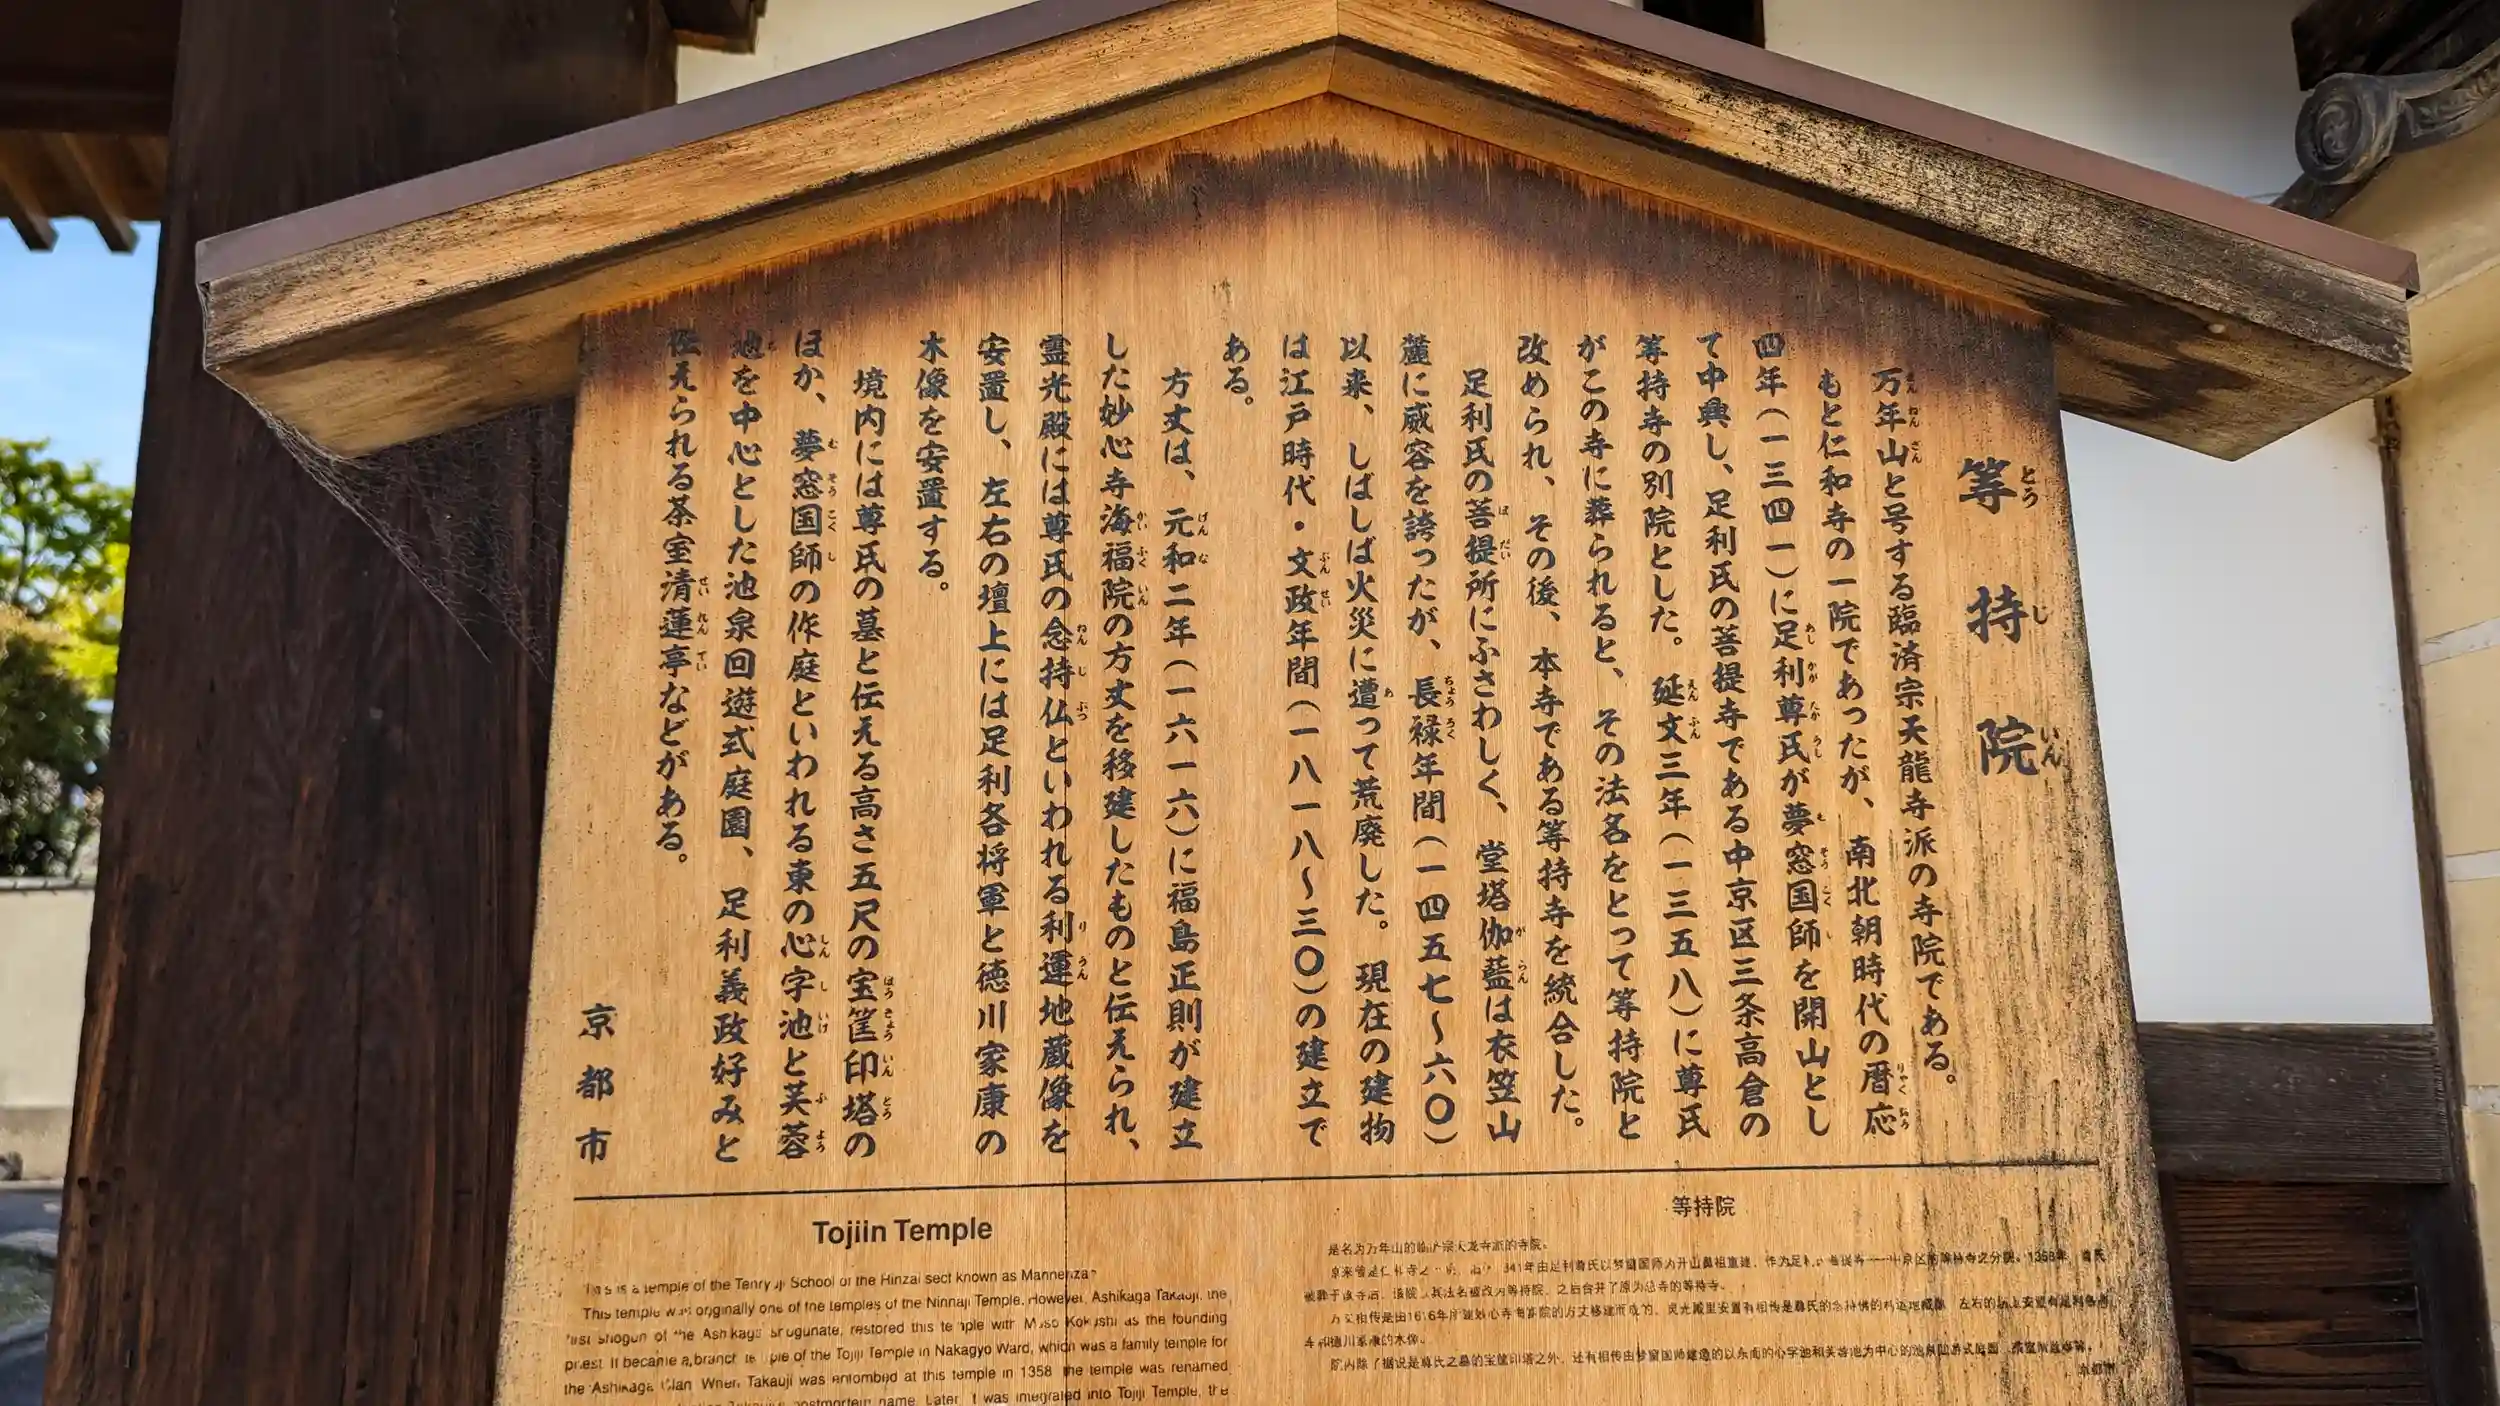 等持院
万年山と号する臨済宗天龍寺派の寺院である。
もと仁和寺の一院であったが、南北朝時代の暦応
四年(一三四一)に足利尊氏が夢窓国師を開山とし
て中興し、足利氏の菩提寺である中京区三条高倉の
等持寺の別院とした。延文三年(一三五八)に尊氏
がこの寺に葬られると、その法名をとって等持院と
改められ、その後、本寺である等持寺を統合した。
足利氏の菩提所にふさわしく、堂塔伽藍は衣笠山
麓に威容を誇ったが、長禄年間(一四五七〜六〇)
以来、しばしば火災に遭って荒廃した。現在の建物
は江戸時代・文政年間(一八一八〜三〇)の建立で
ある。
方丈は、元和二年(一六一六)に福島正則が建立
した妙心寺海福院の方丈を移建したものと伝えられ、
霊光殿には尊氏の念持仏といわれる利運地蔵像を
安置し、左右の壇上には足利各将軍と徳川家康の
木像を安置する。
境内には尊氏の墓と伝える高さ五尺の宝筐印塔の
ほか、夢窓国師の作庭といわれる東の心字池と芙蓉
池を中心とした池泉回遊式庭園、足利義政好みと
伝えられる茶室清蓮亭などがある。
京都市
Tojiin Temple
This is a temple of the Tenryuji School of the Rinzai sect known as
This temple was originally one of the temples of the Ninnaji Temple. However, Ashikaga Takauji, the
first shogun of the Ashikaga Shogunate, restored this temple with Muso Kokushi as the founding
priest. It became a branch temple of the Tojiji Temple in Nakagyo Ward, which was a family temple for
the Ashikaga Clan. When Takauji was entombed at this temple in 1358, the temple was renamed
postmortem name. Later, it was integrated into Tojiji Temple, the
等持院
是名为万年山的临济宗天龙寺派的寺院。
341年由足利尊氏以梦窗国师为开山鼻祖重建，作为足利 1358年，尊氏
之后合并了原为总寺的等持寺。
方丈相传是由1616年 建妙心寺海福院的方丈移建而成的。灵光殿里安置有相传是尊氏的念持佛的利运地藏像
德川家康的木像。
院内除了据说是尊氏之墓的宝箧印塔之外，还有相传由梦窗国师建造的以东面的心字池和芙蓉池为中心的池泉
京都市